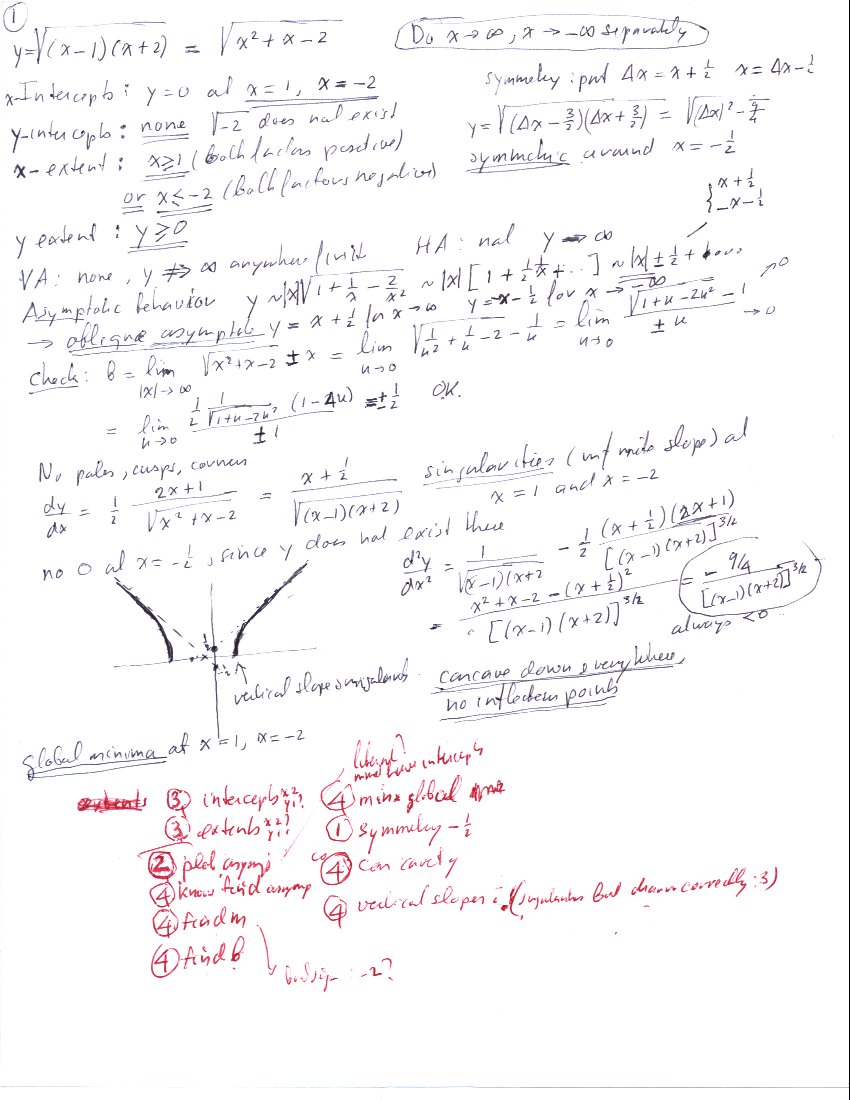 ①
y=√((x-1)(x+2)) = √(x²+x-2)
Do x→∞, x→-∞ separately
x-Intercepts: y=0 at x=1, x=-2
symmetry: put Δx=x+1/2 x=Δx-1/2
y-intercepts: none √-2 does not exist
y=√((Δx-3/2)(Δx+3/2)) = √((Δx)²-9/4)
x-extent: x≥1 (both factors positive)
symmetric around x=-1/2
or x≤-2 (both factors negative)
{x+1/2
-x-1/2
y extent: y≥0
VA: none, y↛∞ anywhere finite HA: not y→∞
Asymptotic behavior y~|x|√(1+1/x-2/x²) ~|x|[1+1/2 1/x+...] ~|x|±1/2+
→ oblique asymptote y=x+1/2 for x→∞ y=-x-1/2 for x→-∞
Check: b=lim |x|→∞ √(x²+x-2) ± x = lim u→0 √(1/u²+1/u-2)-1/u = lim u→0 (√(1+u-2u²)-1)/(±u) →0 →0
= lim u→0 (1/2 1/√(1+u-2u²) (1-4u))/(±1) = ±1/2 OK.
No poles, cusps, corners
singularities (infinite slope) at
x=1 and x=-2
dy/dx = 1/2 (2x+1)/√(x²+x-2) = (x+1/2)/√((x-1)(x+2))
no 0 at x=-1/2, since y does not exist there
d²y/dx² = 1/√((x-1)(x+2) - 1/2 (x+1/2)(2x+1)/[(x-1)(x+2)]^3/2
= (x²+x-2-(x+1/2)²)/[(x-1)(x+2)]^3/2 = (-9/4)/[(x-1)(x+2)]^3/2
always <0
1/2
-1/2
vertical slope singularities
concave down everywhere,
no inflection points
global minima at x=1, x=-2
③ intercepts x2 y1?
③ extents x2? y1?
② plot asymp
④ know find asymp
④ find m
④ find b
-2?
④ min global
① symmetry -1/2
④ concavity
④ vertical slopes (singularities but drawn correctly: 3)